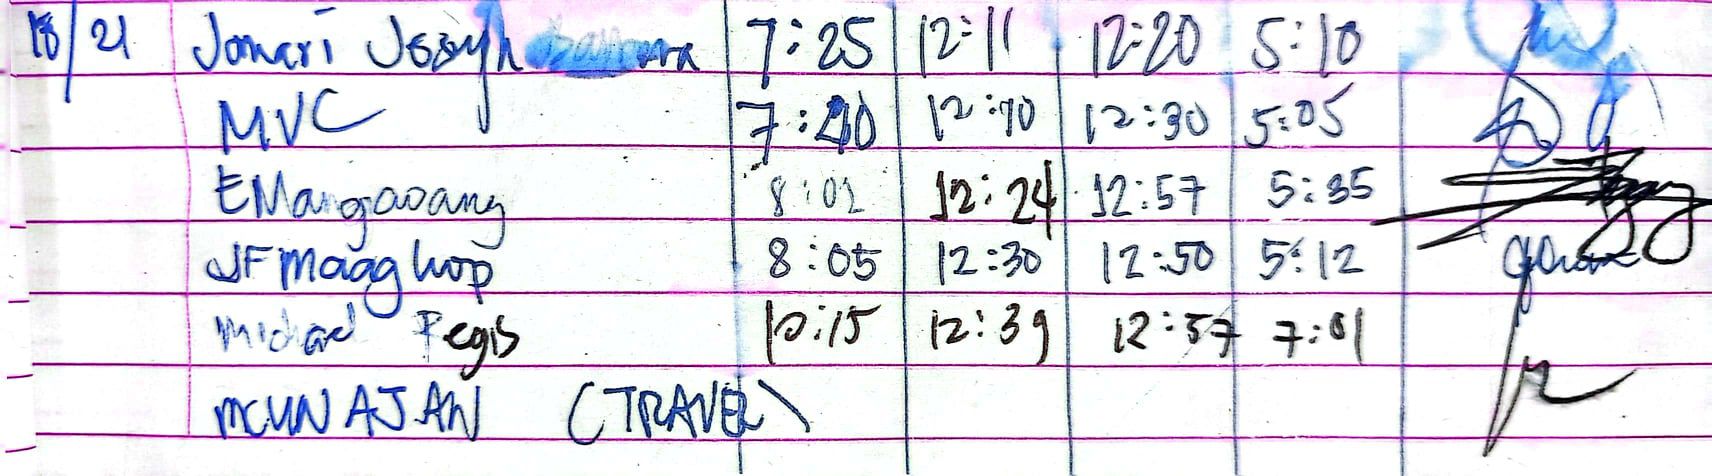 18/21 Jomari Joseph 7:25 12:11 12:20 5:10
MVC 7:20 12:10 12:30 5:05
EMangaoang 8:02 12:24 12:57 5:35
JFmaaghop 8:05 12:30 12:50 5:12
Michael Regis 10:15 12:39 12:57 7:01
MCUNAJAN (TRAVEL)